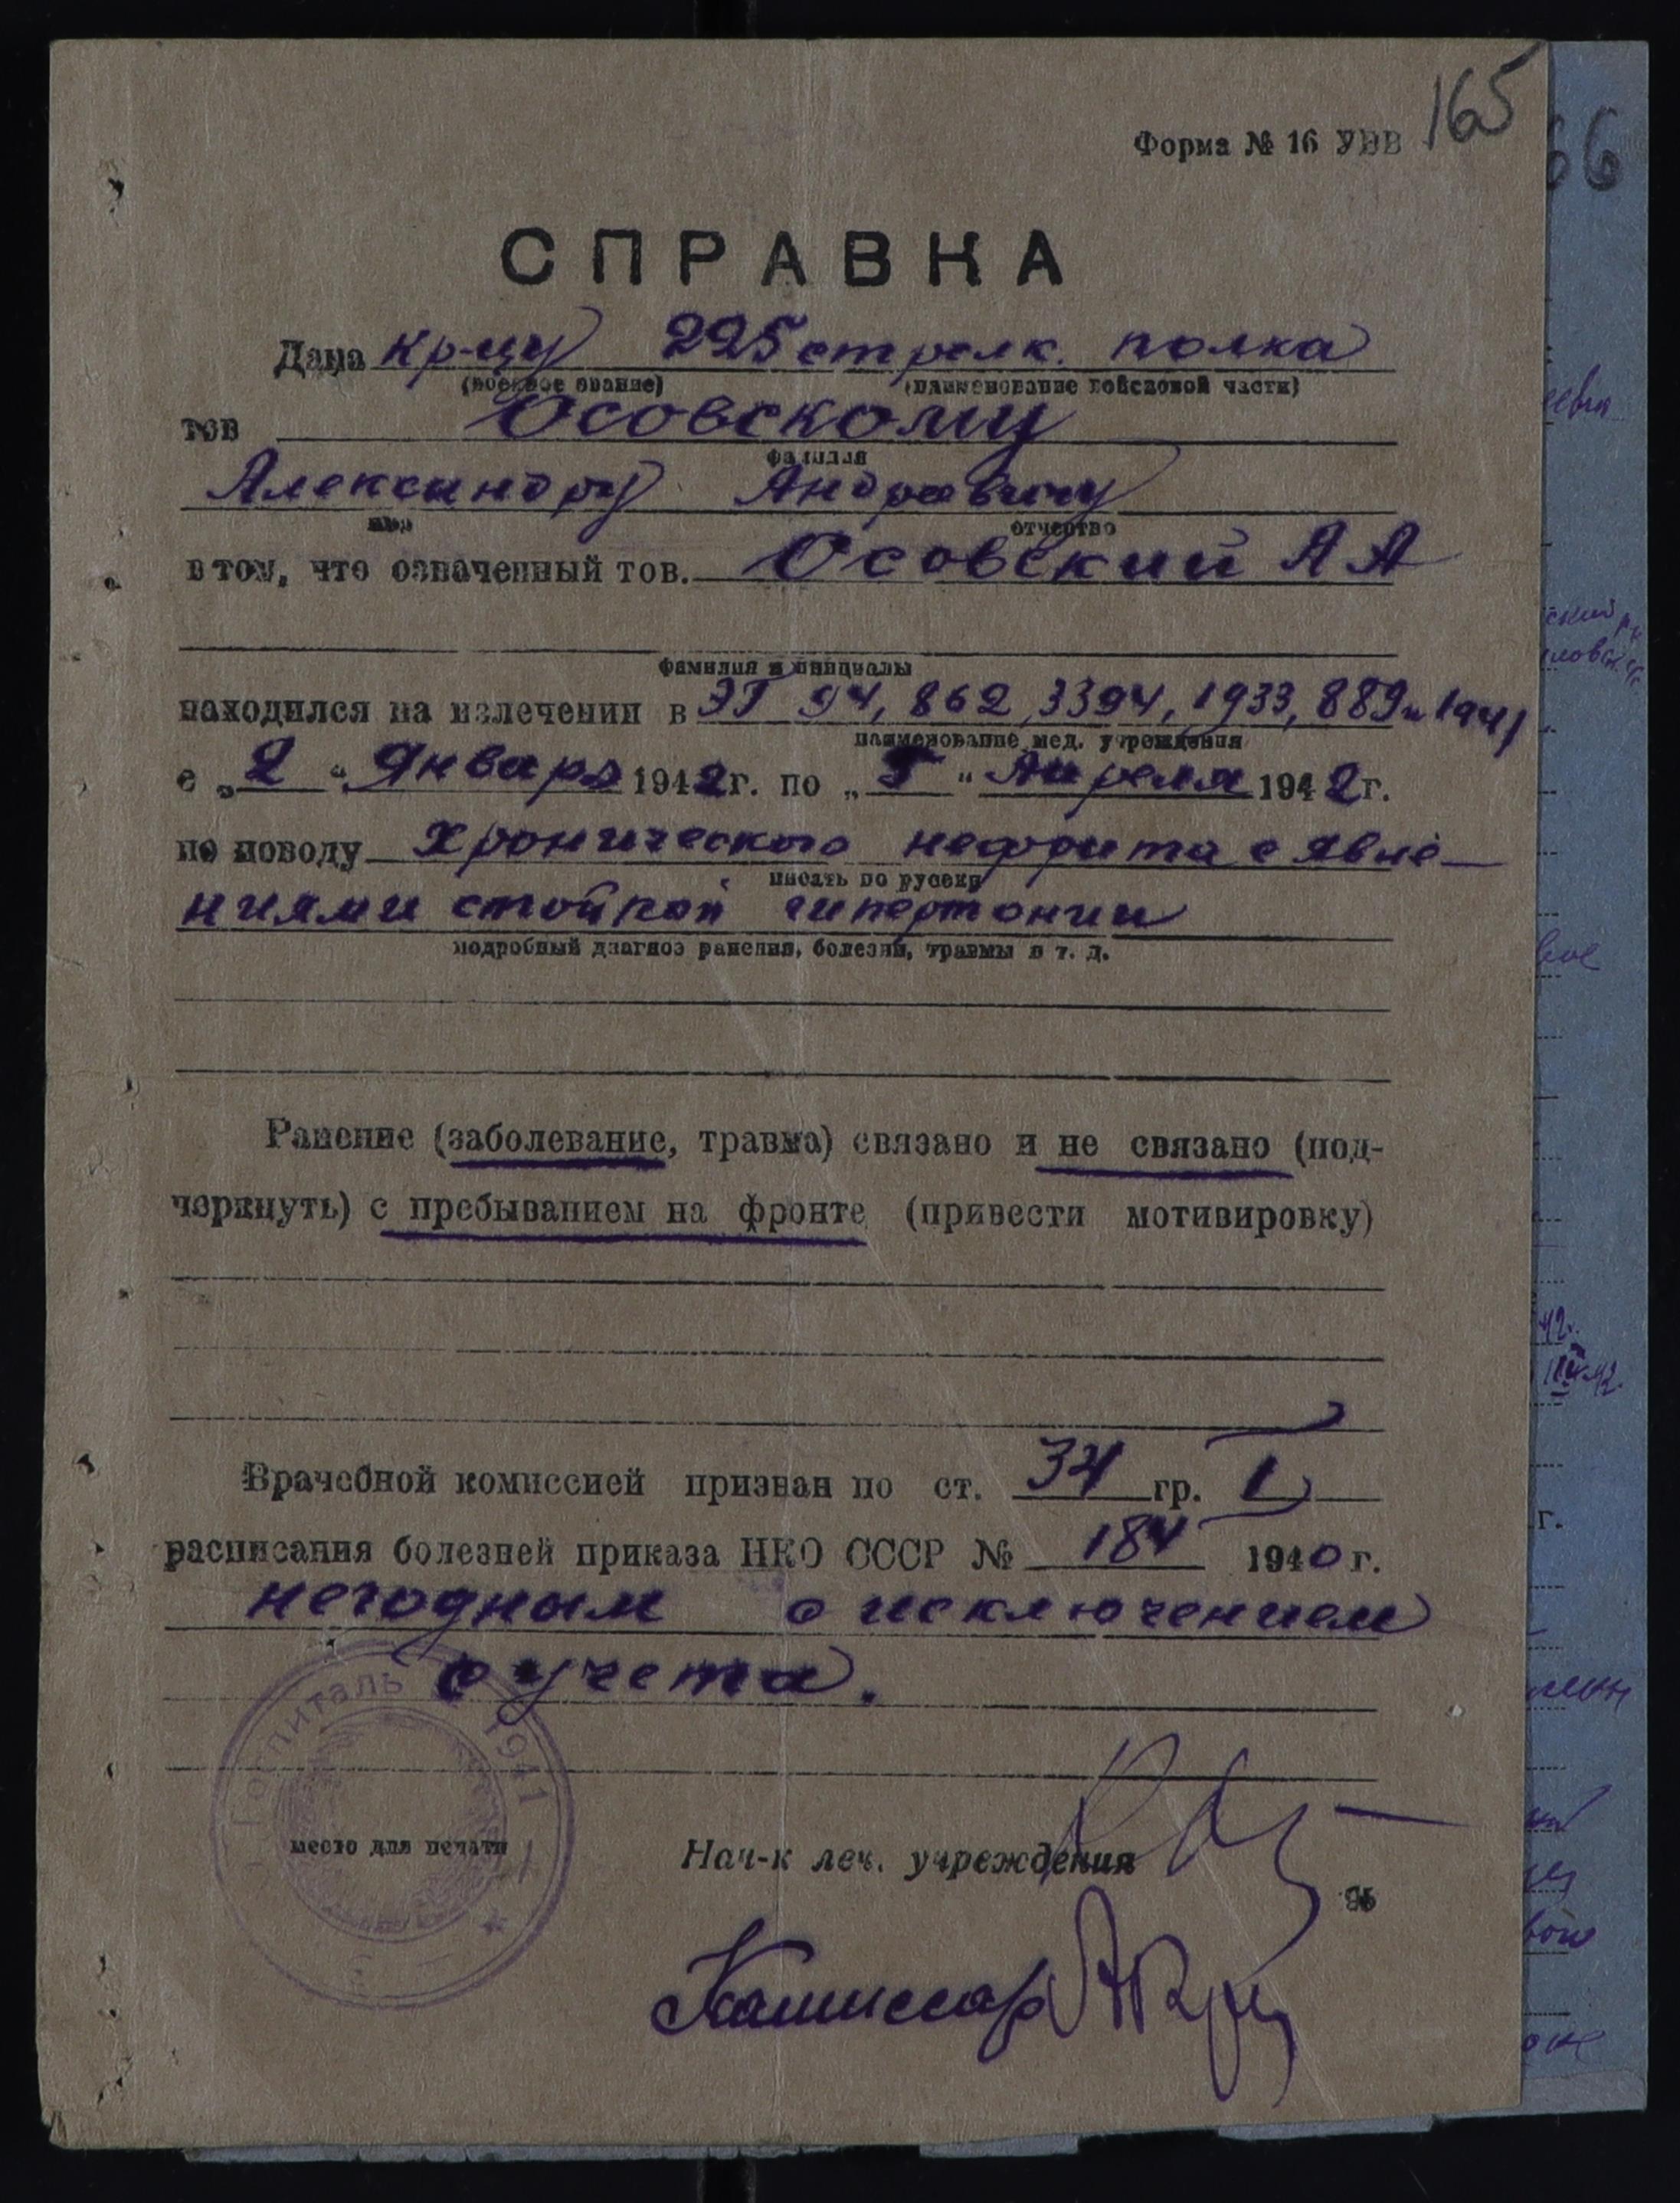 165
Форма № 16 УВВ
66
СПРАВКА
Дана кр-цу 225 стрелк. полка
(военное звание) (наименование войсковой части)
тов Осовскому
фамилия
Александру Андреевичу
имя отчество
в том, что означенный тов. Осовский А А
фамилия и инициалы
находился на излечении в ЭГ 94, 862, 3394, 1933, 889 и 1941
наименование мед. учреждения
с „2“ Января 1942 г. по „5“ Апреля 1942 г.
по поводу Хронического нефрита с явле-
писать по русски
ниями стойкой гипертонии
подробный диагноз ранения, болезни, травмы и т. д.
Ранение (заболевание, травма) связано и не связано (под-
черкнуть) с пребыванием на фронте (привести мотивировку)
Врачебной комиссией призван по ст. 34 гр. I
расписания болезней приказа НКО СССР № 184 1940 г.
негодным с исключением
с учета.
Госпиталь 1941
место для печати
Нач-к леч. учреждения
Комиссар